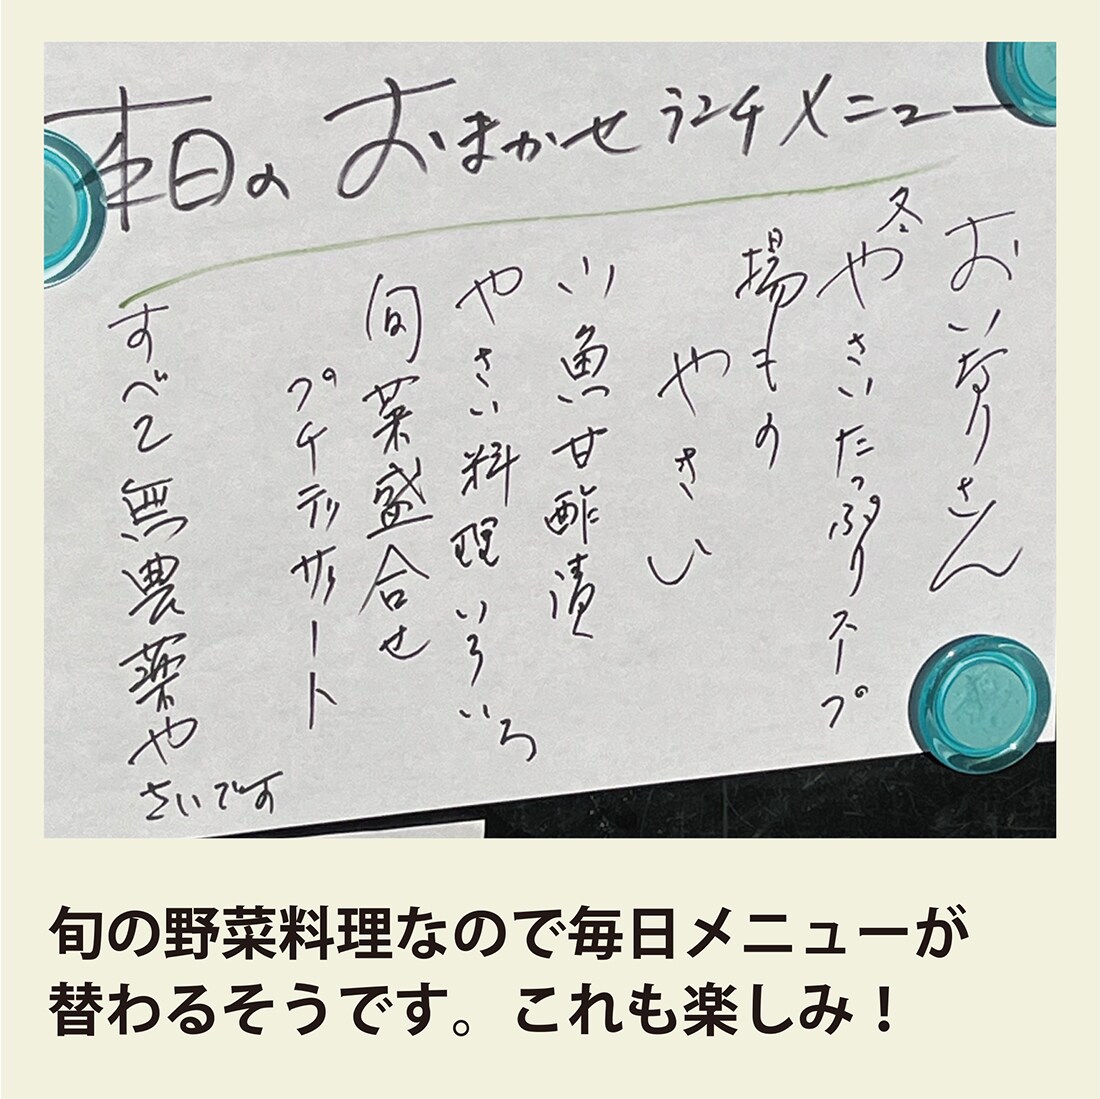 本日の おまかせ ランチメニュー
おいなりさん
冬やさいたっぷりスープ
揚もの
やさい
川魚甘酢漬
やさい料理いろいろ
旬菜盛合せ
プチデザート
すべて無農薬や
さいです
旬の野菜料理なので毎日メニューが
替わるそうです。これも楽しみ！